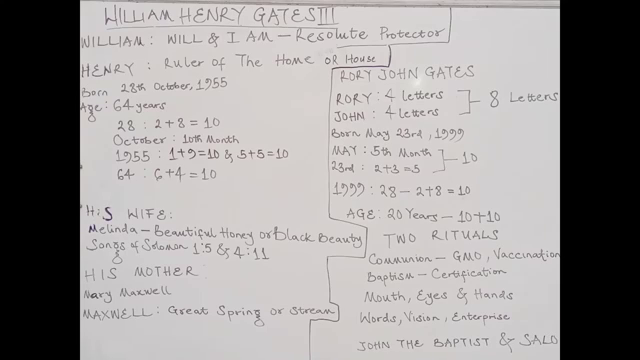 WILLIAM HENRY GATES III
WILLIAM: WILL & I AM - RESOLUTE PROTECTOR
HENRY: RULER OF THE HOME OR HOUSE
Born 28th October, 1955
Age: 64 years
28 : 2+8 = 10
October : 10th Month
1955 : 1+9=10 & 5+5=10
64 : 6+4 = 10
HIS WIFE:
Melinda - Beautiful Honey or Black Beauty
Songs of Solomon 1:5 & 4:11
HIS MOTHER:
Mary Maxwell
MAXWELL: Great Spring or Stream
RORY JOHN GATES
RORY : 4 letters
JOHN : 4 letters
8 Letters
Born May 23rd, 1999
MAY : 5th Month
23rd : 2+3 = 5
10
1999 : 28 - 2+8 = 10
AGE: 20 Years - 10+10
TWO RITUALS
Communion - GMO, Vaccination
Baptism - Certification
Mouth, Eyes & Hands
Words, Vision, Enterprise
JOHN THE BAPTIST & SALO